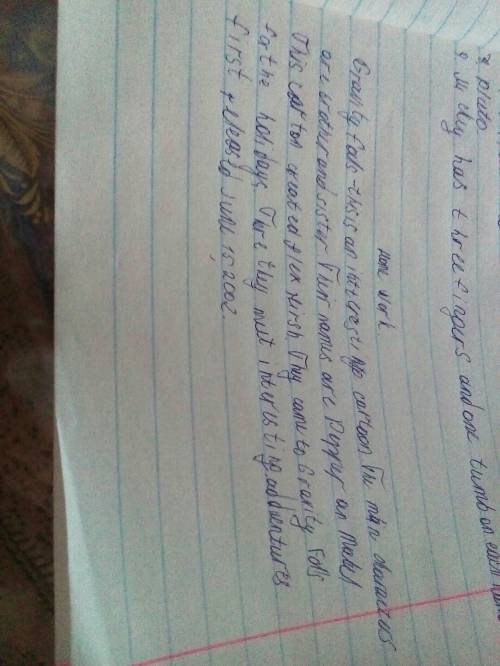 * pluto
* Mickey has three fingers and one tumb on each hand
Home work
Gravity Fals - this is an interesting cartoon The main characters
are brother and sister Their names are Dipper an Mabel
This carton created Alex Hirsh. They came to Gravity Fols
for the holidays. There they meet interesting addventures
first released June 15, 2002